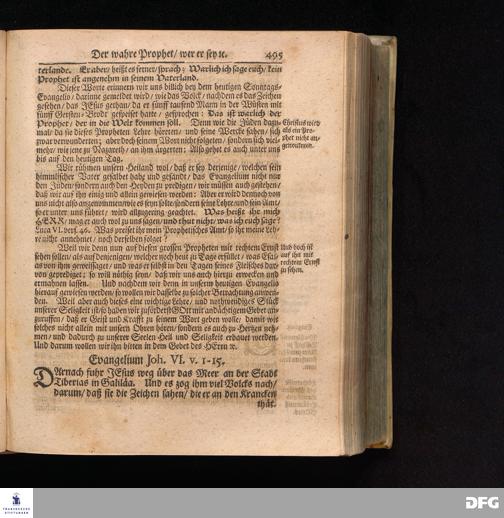 Der wahre Prophet/ wer er sey ꝛc. 495
terlande. Er aber/ heißt es ferner/ sprach: Warlich ich sage euch/ kein
Prophet ist angenehm in seinem Vaterland.
Dieser Worte erinnern wir uns billich bey dem heutigen Sonntags-
Evangelio/ darinne gemeldet wird/ wie das Volck/ nachdem es das Zeichen
gesehen/ das JEsus gethan/ da er fünff tausend Mann in der Wüsten mit
fünff Gersten-Brodt gespeiset hatte/ gesprochen: Das ist warlich der
Prophet/ der in die Welt kommen soll. Denn wie die Jüden dazu-
mal/ da sie dieses Propheten Lehre höreten/ und seine Werck sahen/ sich
zwar verwunderten; aber doch seinem Wort nicht folgeten/ sondern sich viel-
mehr/ wie jene zu Nazareth/ an ihm ärgerten: Also gehet es auch unter uns
biß auf den heutigen Tag.
Christus wird
als ein Pro-
phet nicht an-
genommen.
Wir rühmen unsern Heiland wol/ daß er sey derjenige/ welchen sein
himmlischer Vater gesalbet habe und gesandt/ das Evangelium nicht nur
den Jüden/ sondern auch den Heyden zu predigen/ wir müssen auch gestehen/
daß wir auf ihn einig und allein gewiesen werden: Aber er wird dennoch von
uns nicht also angenommen/ wie es seyn solte/ sondern seine Lehre und sein Amt/
so er unter uns führet/ wird allzugering geachtet. Was heißt ihr mich
HERR/ mag er auch wol zu uns sagen/ und thut nicht/ was ich euch sage?
Luca VI. vers. 46. Was preiset ihr mein Prophetisches Amt/ so ihr meine Leh-
re nicht annehmet/ noch derselben folget?
Weil wir denn nun auf diesen grossen Propheten mit rechtem Ernst
sehen sollen/ als auf denjenigen/ welcher noch heut zu Tage erfüllet/ was Esai-
as von ihm geweissaget/ und was er selbst in den Tagen seines Fleisches dar-
von geprediget; so will nöthig seyn/ daß wir uns auch hierzu erwecken und
ermahnen lassen. Und nachdem wir denn in unserm heutigen Evangelio
hierauf gewiesen werden/ so wollen wir dasselbe zu solcher Betrachtung anwen-
den. Weil aber auch dieses eine wichtige Lehre/ und nothwendiges Stück
unserer Seligkeit ist/ so haben wir zuförderst GOtt mit andächtigem Gebet an-
zuruffen/ daß er Geist und Krafft zu seinem Wort geben wolle/ damit wir
solches nicht allein mit unsern Ohren hören/ sondern es auch zu Hertzen neh-
men/ und dadurch zu unserer Seelen Heil und Seligkeit erbauet werden.
Und darum wollen wir ihn bitten in dem Gebet des HErrn ꝛc.
Und doch ist
auf ihn mit
rechtem Ernst
zu sehen.
Evangelium Joh. VI. v. 1-15.
DArnach fuhr JEsus weg über das Meer an der Stadt
Tiberias in Galiläa. Und es zog ihm viel Volcks nach/
darum/ daß sie die Zeichen sahen/ die er an den Krancken
thät.
DFG